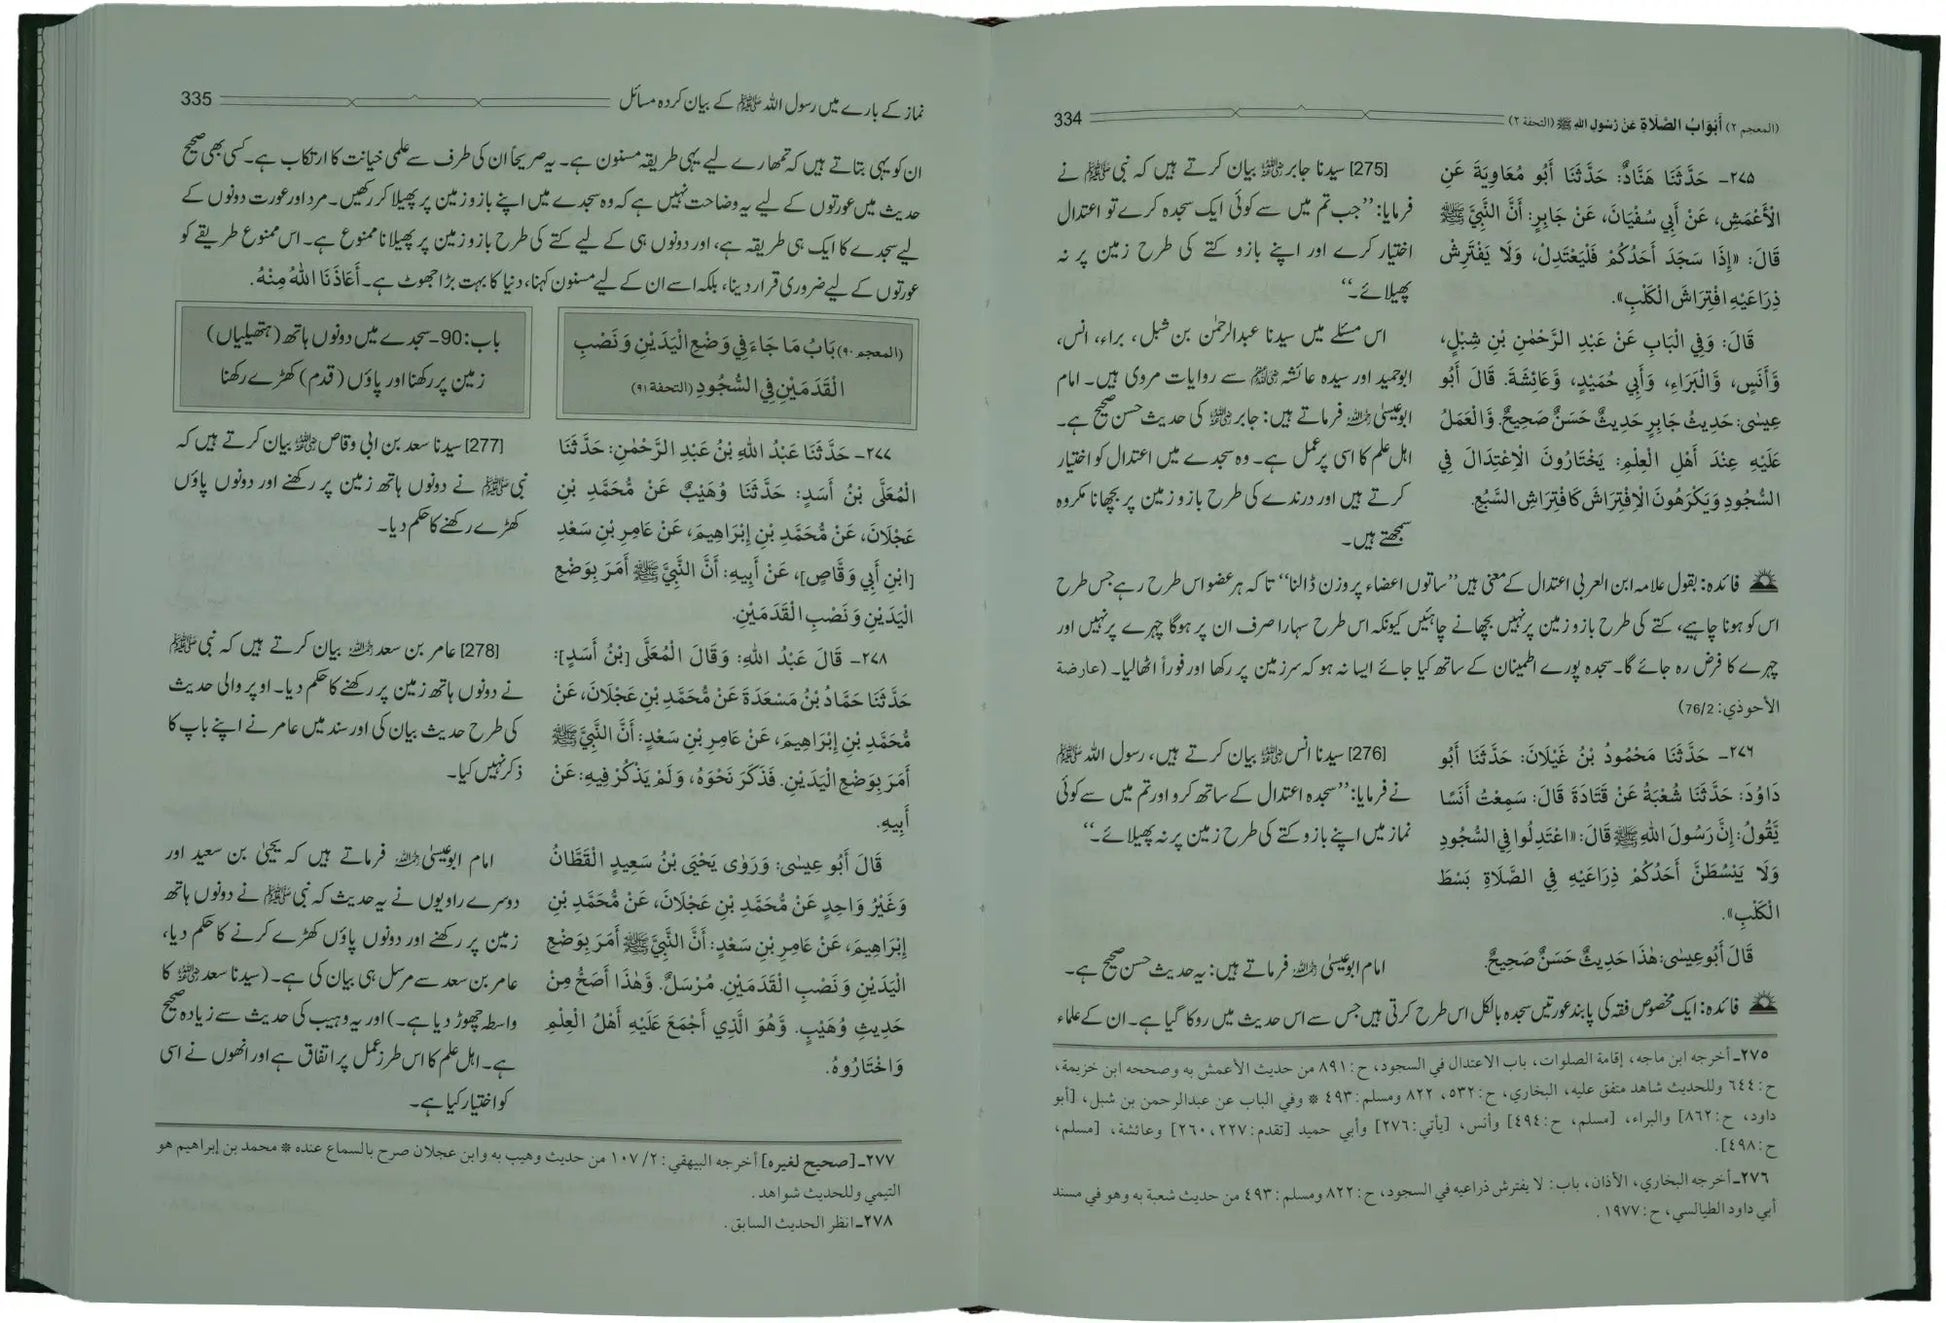 (المعجم ٢) أَبْوَابُ الصَّلَاةِ عَنْ رَسُولِ اللهِ ﷺ (التحفة ٢)
334
٢٧٥- حَدَّثَنَا هَنَّادٌ: حَدَّثَنَا أَبُو مُعَاوِيَةَ عَنِ
الْأَعْمَشِ، عَنْ أَبِي سُفْيَانَ، عَنْ جَابِرٍ: أَنَّ النَّبِيَّ ﷺ
قَالَ: «إِذَا سَجَدَ أَحَدُكُمْ فَلْيَعْتَدِلْ، وَلَا يَفْتَرِشْ
ذِرَاعَيْهِ افْتِرَاشَ الْكَلْبِ».
قَالَ: وَفِي الْبَابِ عَنْ عَبْدِ الرَّحْمٰنِ بْنِ شِبْلٍ،
وَّأَنَسٍ، وَّالْبَرَاءِ، وَأَبِي حُمَيْدٍ، وَّعَائِشَةَ. قَالَ أَبُو
عِيسٰى: حَدِيثُ جَابِرٍ حَدِيثٌ حَسَنٌ صَحِيحٌ. وَّالْعَمَلُ
عَلَيْهِ عِنْدَ أَهْلِ الْعِلْمِ: يَخْتَارُونَ الْاِعْتِدَالَ فِي
السُّجُودِ وَيَكْرَهُونَ الْاِفْتِرَاشَ كَافْتِرَاشِ السَّبُعِ.
[275] سیدنا جابر ؓ بیان کرتے ہیں کہ نبی ﷺ نے
فرمایا: ’’جب تم میں سے کوئی ایک سجدہ کرے تو اعتدال
اختیار کرے اور اپنے بازو کتے کی طرح زمین پر نہ
پھیلائے۔‘‘
اس مسئلے میں سیدنا عبدالرحمٰن بن شبل، براء، انس،
ابوحمید اور سیدہ عائشہ ؓ سے روایات مروی ہیں۔ امام
ابوعیسیٰ ؒ فرماتے ہیں: جابر ؓ کی حدیث حسن صحیح ہے۔
اہل علم کا اسی پر عمل ہے۔ وہ سجدے میں اعتدال کو اختیار
کرتے ہیں اور درندے کی طرح بازو زمین پر بچھانا مکروہ
سمجھتے ہیں۔
فائدہ: بقول علامہ ابن العربی اعتدال کے معنی ہیں ’’ساتوں اعضاء پر وزن ڈالنا‘‘ تاکہ ہر عضو اس طرح رہے جس طرح
اس کو ہونا چاہیے، کتے کی طرح بازو زمین پر نہیں بچھانے چاہئیں کیونکہ اس طرح سہارا صرف ان پر ہوگا چہرے پر نہیں اور
چہرے کا فرض رہ جائے گا۔ سجدہ پورے اطمینان کے ساتھ کیا جائے ایسا نہ ہو کہ سر زمین پر رکھا اور فوراً اٹھالیا۔ (عارضة
الأحوذي: 76/2)
٢٧٦- حَدَّثَنَا مَحْمُودُ بْنُ غَيْلَانَ: حَدَّثَنَا أَبُو
دَاوُدَ: حَدَّثَنَا شُعْبَةُ عَنْ قَتَادَةَ قَالَ: سَمِعْتُ أَنَسًا
يَّقُولُ: إِنَّ رَسُولَ اللهِ ﷺ قَالَ: «اعْتَدِلُوا فِي السُّجُودِ
وَلَا يَبْسُطَنَّ أَحَدُكُمْ ذِرَاعَيْهِ فِي الصَّلَاةِ بَسْطَ
الْكَلْبِ».
قَالَ أَبُو عِيسٰى: هٰذَا حَدِيثٌ حَسَنٌ صَحِيحٌ.
[276] سیدنا انس ؓ بیان کرتے ہیں، رسول اللہ ﷺ
نے فرمایا: ’’سجدہ اعتدال کے ساتھ کرو اور تم میں سے کوئی
نماز میں اپنے بازو کتے کی طرح زمین پر نہ پھیلائے۔‘‘
امام ابوعیسیٰ ؒ فرماتے ہیں: یہ حدیث حسن صحیح ہے۔
فائدہ: ایک مخصوص فقہ کی پابند عورتیں سجدہ بالکل اس طرح کرتی ہیں جس سے اس حدیث میں روکا گیا ہے۔ ان کے علماء
٢٧٥ـ أخرجه ابن ماجه، إقامة الصلوات، باب الاعتدال في السجود، ح:٨٩١ من حديث الأعمش به وصححه ابن خزيمة،
ح:٦٤٤ وللحديث شاهد متفق عليه، البخاري، ح:٥٣٢، ٨٢٢ ومسلم:٤٩٣ * وفي الباب عن عبدالرحمن بن شبل، [أبو
داود، ح:٨٦٢] والبراء، [مسلم، ح:٤٩٤] وأنس، [يأتي:٢٧٦] وأبي حميد [تقدم:٢٢٧، ٢٦٠] وعائشة، [مسلم،
ح:٤٩٨].
٢٧٦ـ أخرجه البخاري، الأذان، باب: لا يفترش ذراعيه في السجود، ح:٨٢٢ ومسلم:٤٩٣ من حديث شعبة به وهو في مسند
أبي داود الطيالسي، ح:١٩٧٧.
نماز کے بارے میں رسول اللہ ﷺ کے بیان کردہ مسائل
335
ان کو یہی بتاتے ہیں کہ تمھارے لیے یہی طریقہ مسنون ہے۔ یہ صریحاً ان کی طرف سے علمی خیانت کا ارتکاب ہے۔ کسی بھی صحیح
حدیث میں عورتوں کے لیے یہ وضاحت نہیں ہے کہ وہ سجدے میں اپنے بازو زمین پر پھیلا کر رکھیں۔ مرد اور عورت دونوں کے
لیے سجدے کا ایک ہی طریقہ ہے، اور دونوں ہی کے لیے کتے کی طرح بازو زمین پر پھیلانا ممنوع ہے۔ اس ممنوع طریقے کو
عورتوں کے لیے ضروری قرار دینا، بلکہ اسے ان کے لیے مسنون کہنا، دنیا کا بہت بڑا جھوٹ ہے۔ أَعَاذَنَا اللهُ مِنْهُ.
(المعجم ٩٠) بَابُ مَا جَاءَ فِي وَضْعِ الْيَدَيْنِ وَنَصْبِ
الْقَدَمَيْنِ فِي السُّجُودِ (التحفة ٩١)
باب: 90۔ سجدے میں دونوں ہاتھ (ہتھیلیاں)
زمین پر رکھنا اور پاؤں (قدم) کھڑے رکھنا
٢٧٧- حَدَّثَنَا عَبْدُ اللهِ بْنُ عَبْدِ الرَّحْمٰنِ: حَدَّثَنَا
الْمُعَلَّى بْنُ أَسَدٍ: حَدَّثَنَا وُهَيْبٌ عَنْ مُّحَمَّدِ بْنِ
عَجْلَانَ، عَنْ مُّحَمَّدِ بْنِ إِبْرَاهِيمَ، عَنْ عَامِرِ بْنِ سَعْدِ
[ابْنِ أَبِي وَقَّاصٍ]، عَنْ أَبِيهِ: أَنَّ النَّبِيَّ ﷺ أَمَرَ بِوَضْعِ
الْيَدَيْنِ وَنَصْبِ الْقَدَمَيْنِ.
٢٧٨- قَالَ عَبْدُ اللهِ: وَقَالَ الْمُعَلَّى [بْنُ أَسَدٍ]:
حَدَّثَنَا حَمَّادُ بْنُ مَسْعَدَةَ عَنْ مُّحَمَّدِ بْنِ عَجْلَانَ، عَنْ
مُّحَمَّدِ بْنِ إِبْرَاهِيمَ، عَنْ عَامِرِ بْنِ سَعْدٍ: أَنَّ النَّبِيَّ ﷺ
أَمَرَ بِوَضْعِ الْيَدَيْنِ. فَذَكَرَ نَحْوَهُ، وَلَمْ يَذْكُرْ فِيهِ: عَنْ
أَبِيهِ.
قَالَ أَبُو عِيسٰى: وَرَوٰى يَحْيَى بْنُ سَعِيدٍ الْقَطَّانُ
وَغَيْرُ وَاحِدٍ عَنْ مُّحَمَّدِ بْنِ عَجْلَانَ، عَنْ مُّحَمَّدِ بْنِ
إِبْرَاهِيمَ، عَنْ عَامِرِ بْنِ سَعْدٍ: أَنَّ النَّبِيَّ ﷺ أَمَرَ بِوَضْعِ
الْيَدَيْنِ وَنَصْبِ الْقَدَمَيْنِ. مُرْسَلٌ. وَّهٰذَا أَصَحُّ مِنْ
حَدِيثِ وُهَيْبٍ. وَّهُوَ الَّذِي أَجْمَعَ عَلَيْهِ أَهْلُ الْعِلْمِ
وَاخْتَارُوهُ.
[277] سیدنا سعد بن ابی وقاص ؓ بیان کرتے ہیں کہ
نبی ﷺ نے دونوں ہاتھ زمین پر رکھنے اور دونوں پاؤں
کھڑے رکھنے کا حکم دیا۔
[278] عامر بن سعد ؒ بیان کرتے ہیں کہ نبی ﷺ
نے دونوں ہاتھ زمین پر رکھنے کا حکم دیا۔ اوپر والی حدیث
کی طرح حدیث بیان کی اور سند میں عامر نے اپنے باپ کا
ذکر نہیں کیا۔
امام ابوعیسیٰ ؒ فرماتے ہیں کہ یحییٰ بن سعید اور
دوسرے راویوں نے یہ حدیث کہ نبی ﷺ نے دونوں ہاتھ
زمین پر رکھنے اور دونوں پاؤں کھڑے کرنے کا حکم دیا،
عامر بن سعد سے مرسل ہی بیان کی ہے۔ (سیدنا سعد ؓ کا
واسطہ چھوڑ دیا ہے۔) اور یہ وہیب کی حدیث سے زیادہ صحیح
ہے۔ اہل علم کا اس طرز عمل پر اتفاق ہے اور انھوں نے اسی
کو اختیار کیا ہے۔
٢٧٧ـ [صحيح لغيره] أخرجه البيهقي: ٢/ ١٠٧ من حديث وهيب به وابن عجلان صرح بالسماع عنده * محمد بن إبراهيم هو
التيمي وللحديث شواهد.
٢٧٨ـ انظر الحديث السابق.